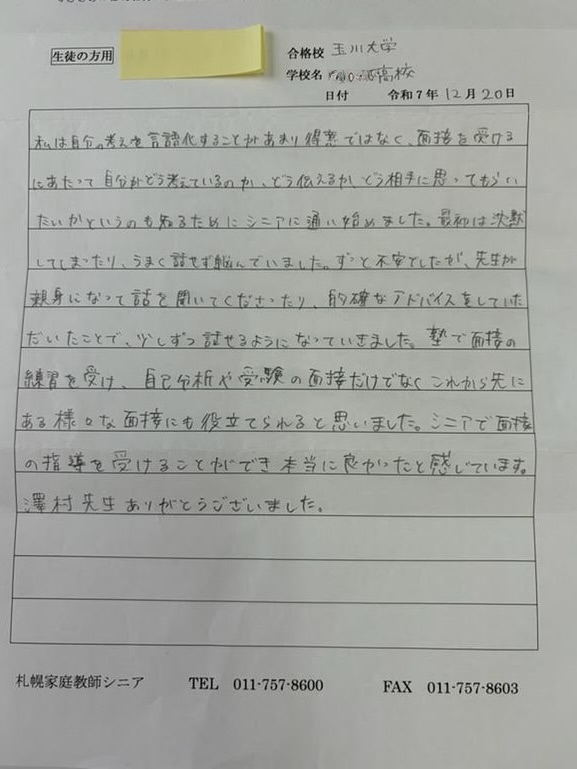 生徒の方用
合格校 玉川大学
学校名 高校
日付 令和7年12月20日
私は自分の考えを言語化することがあまり得意ではなく、面接を受ける
にあたって自分がどう考えているのか、どう伝えるか、どう相手に思ってもらい
たいかというのも知るためにシニアに通い始めました。最初は沈黙
してしまったり、うまく話せず悩んでいました。ずっと不安でしたが、先生が
親身になって話を聞いてくださったり、的確なアドバイスをしていた
だいたことで、少しずつ話せるようになっていきました。塾で面接の
練習を受け、自己分析や受験の面接だけでなくこれから先に
ある様々な面接にも役立てられると思いました。シニアで面接
の指導を受けることができ本当に良かったと感じています。
澤村先生ありがとうございました。
札幌家庭教師シニア TEL 011-757-8600 FAX 011-757-8603